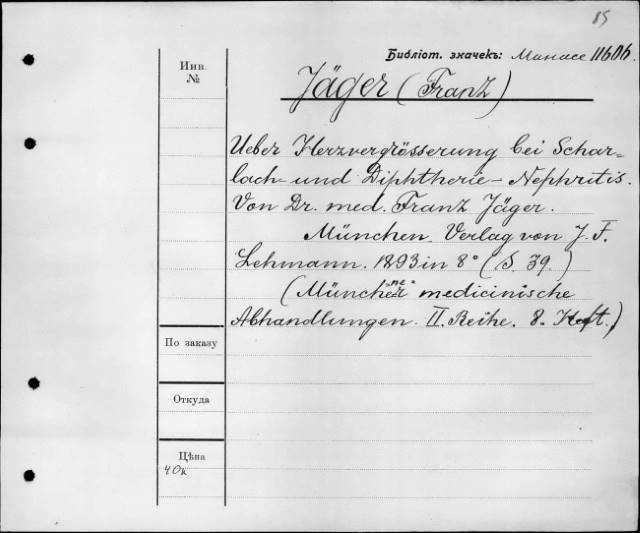 85
Библіот. значекъ: Манасе 11606.
Инв.
№
Jäger (Franz)
Ueber Herzvergrösserung bei Schar-
lach- und Diphtherie-Nephritis.
Von Dr. med. Franz Jäger.
München. Verlag von J. F.
Lehmann. 1893 in 8° (S. 39.)
(Münchener medicinische
Abhandlungen. II. Reihe. 8. Heft.)
По заказу
Откуда
Цѣна
40к